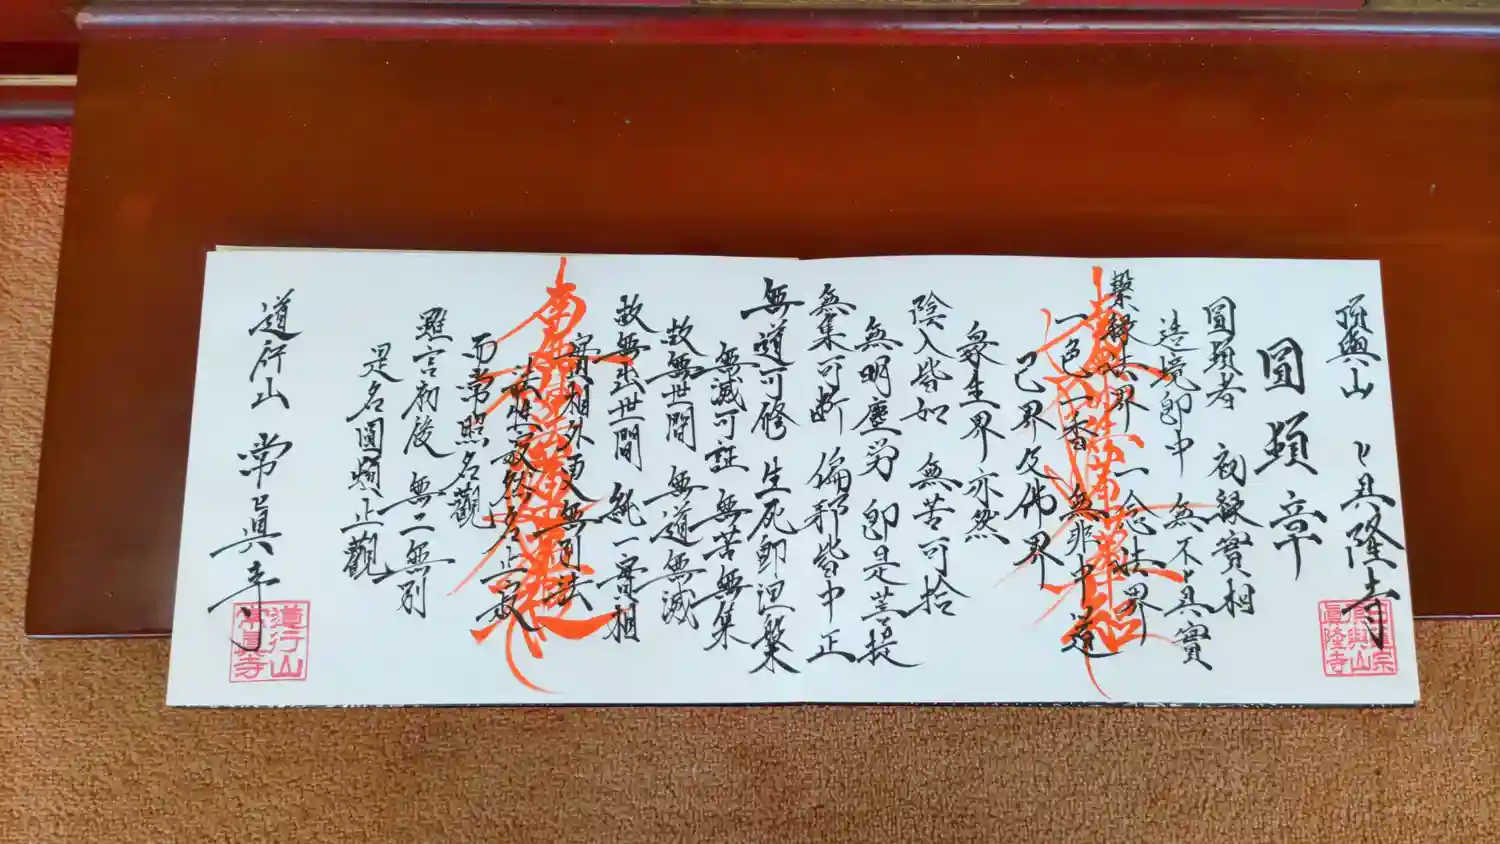 頂興山 真隆寺
圓頓章
圓頓者 初縁實相
造境即中 無不真實
繫縁法界 一念法界
一色一香 無非中道
己界及佛界
衆生界亦然
陰入皆如 無苦可捨
無明塵労 即是菩提
無集可断 偏邪皆中正
無道可修 生死即涅槃
無滅可証 無苦無集
故無世間 無道無滅
故無出世間 純一實相
實相外更無別法
法性寂然名止寂
而常照名觀
雖言初後 無二無別
是名圓頓止觀
道行山 常眞寺
南無妙法蓮華経
南無妙法蓮華経
興山
眞隆寺
道行山
常眞寺